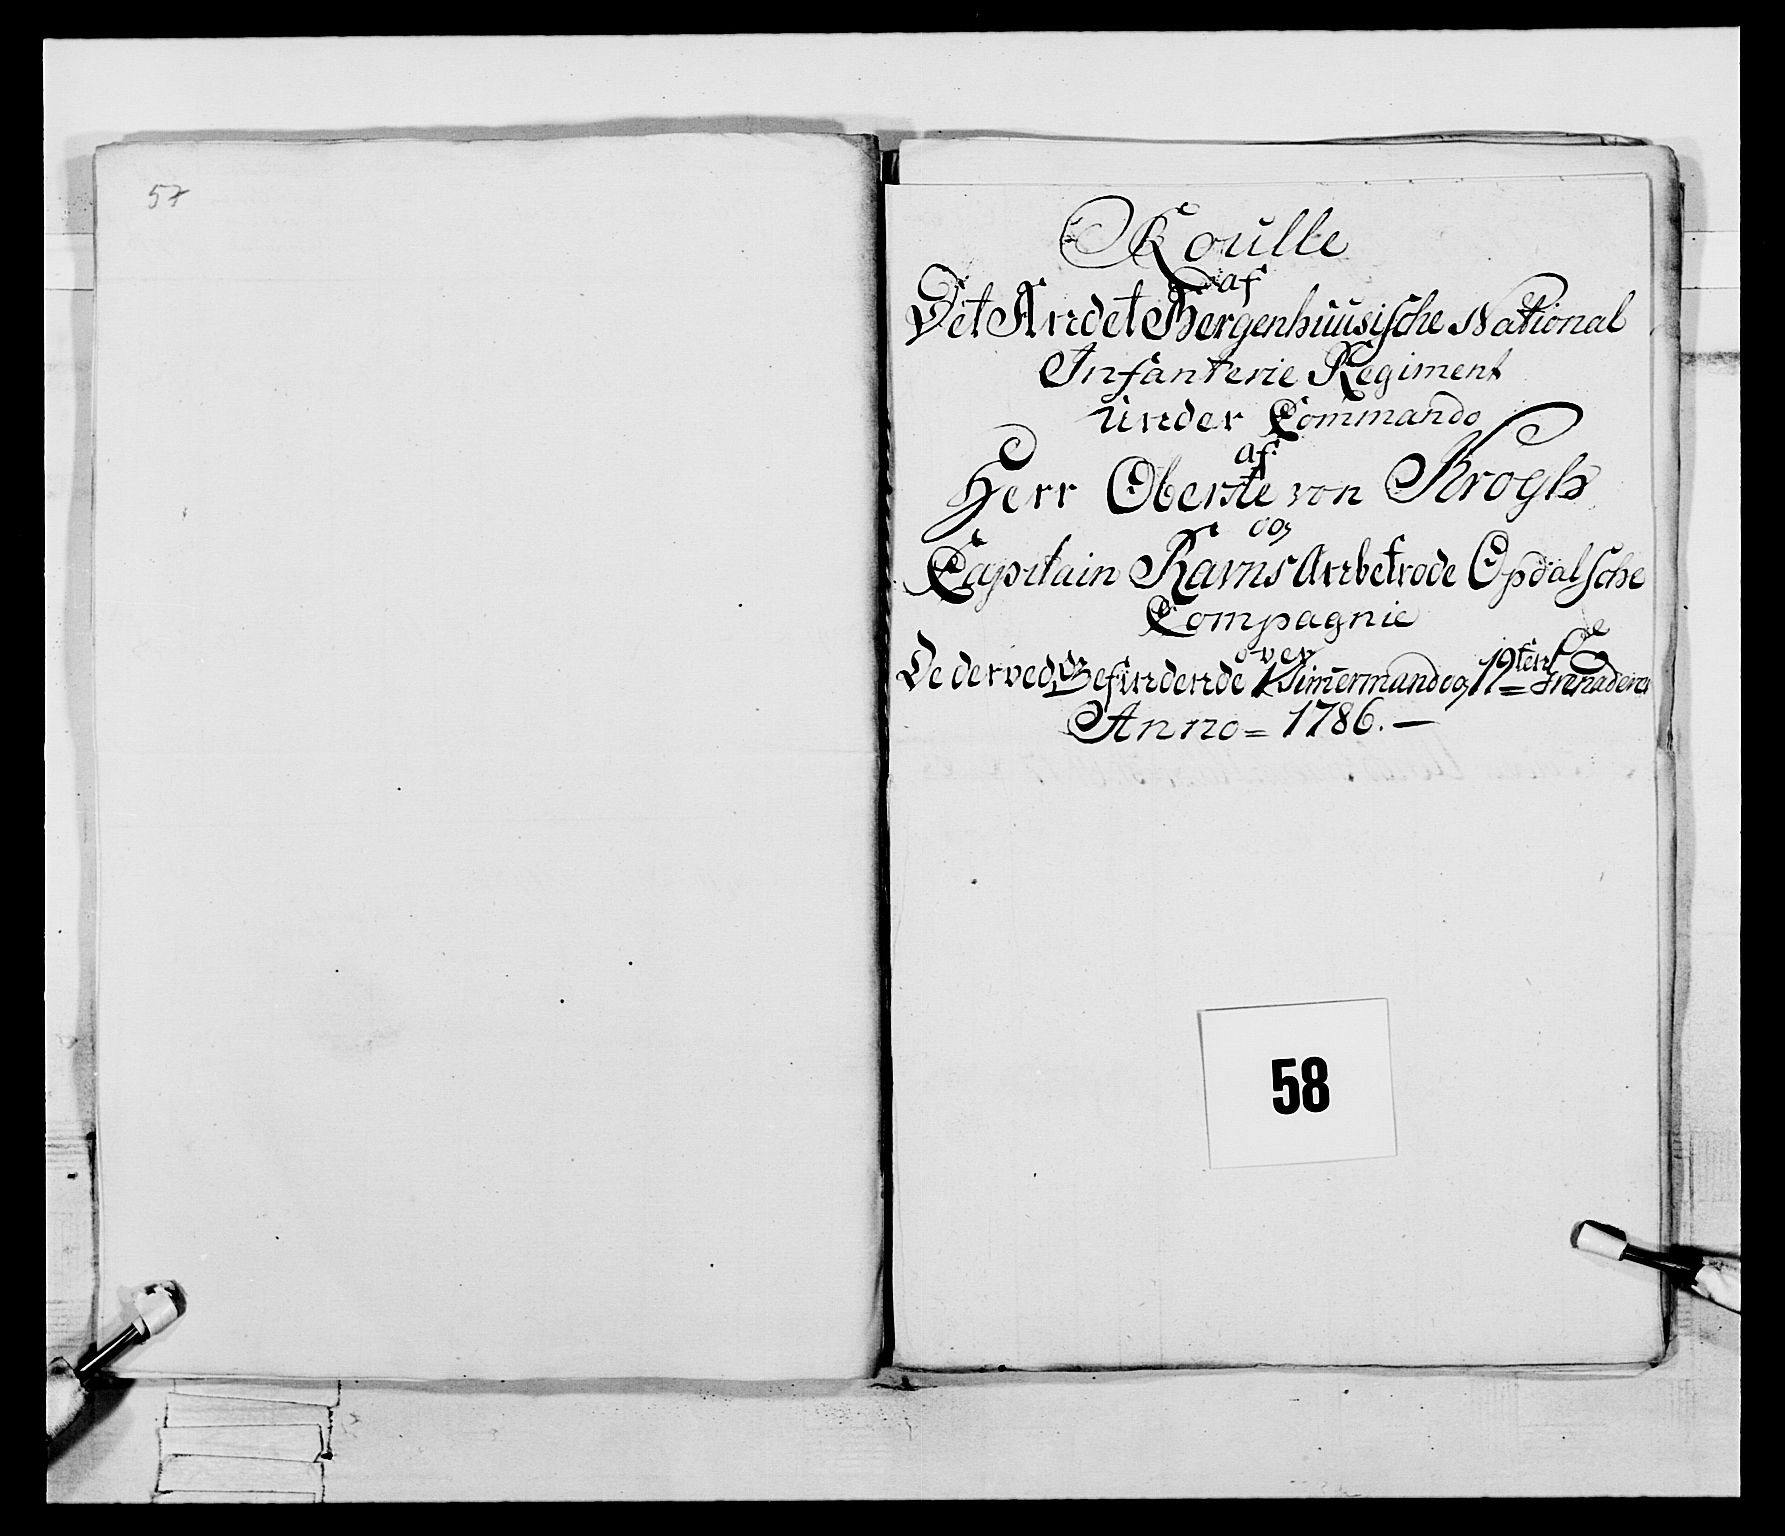 57
Roulle
af
Det Andet Bergenhuusische National
Infanterie Regiment
under Commando
af
Herr Oberste von Krogh
og
Capitain Ravns Anbetrode Opdalsche
Compagnie
over
De derved Befindende 1 Timermand og 19ten Grenaderer
Anno = 1786. —
58